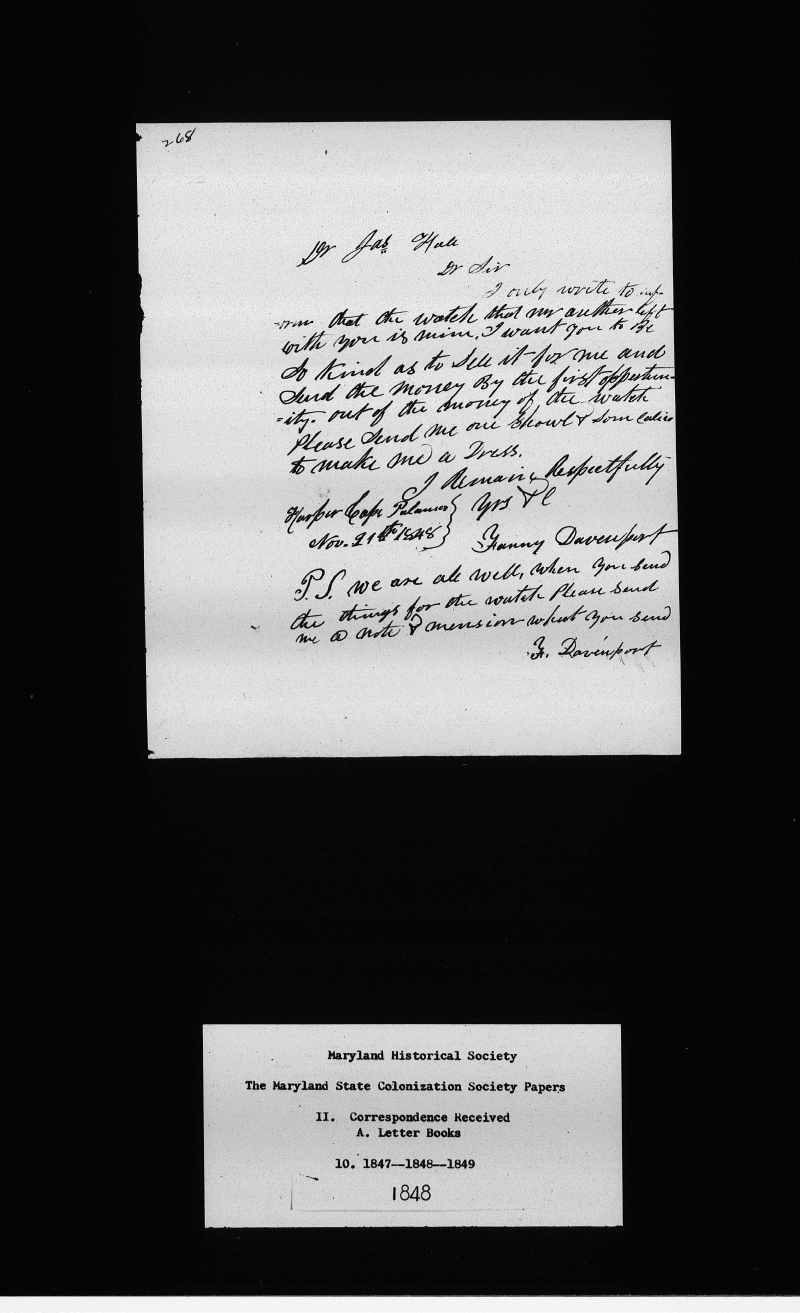 268
Dr Jas Hall
Dr Sir
I only write to inf-
-orm that the watch that my auther left
with you is mine. I want you to Be
So Kind as to Sell it for me and
Send the money By the first oppertun-
=ity. out of the money of the watch
Please Send me one Showl & Som Calico
to make me a Dress.
I Remain Respectfully
Harper Cape Palamas } Yrs &C
Nov. 21th 1848 }
Fanny Davenport
P.S. we are all well, when you send
the things for the watch Please Send
me a note & mension what you send
F. Davenport
Maryland Historical Society
The Maryland State Colonization Society Papers
II. Correspondence Received
A. Letter Books
10. 1847--1848--1849
1848